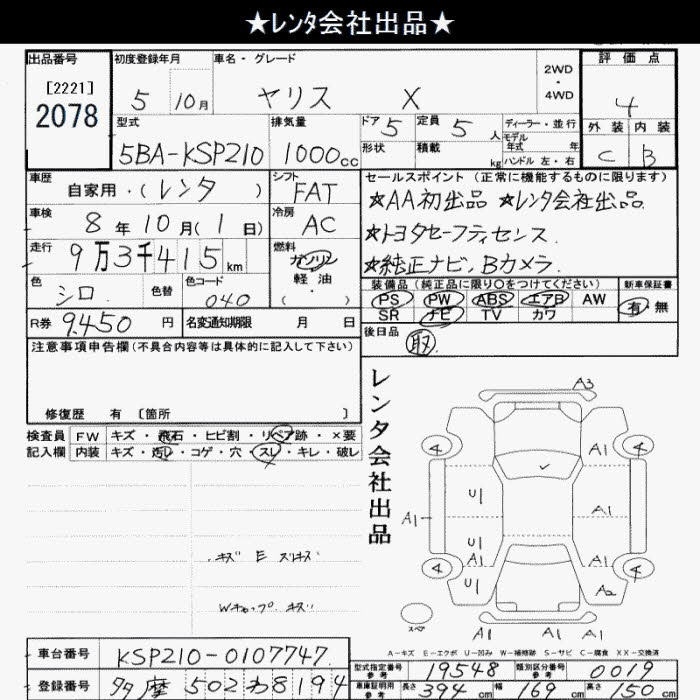 ★レンタ会社出品★
出品番号 初度登録年月 車名・グレード 2WD・4WD 評価点
[2221] 2078 5 10月 ヤリス X 4
型式 排気量 ドア 5 定員 5人 ディーラー・並行 外装 内装
5BA-KSP210 1000cc 形状 積載 kg モデル年式 年式 ハンドル 左・右 C B
車歴 自家用・(レンタ) シフト FAT セールスポイント (正常に機能するものに限ります)
車検 8年10月(1日) 冷房 AC ★AA初出品 ★レンタ会社出品.
走行 9万3千415km 燃料 ガソリン ★トヨタセーフティセンス.
軽油・( ) ★純正ナビ、Bカメラ.
色 シロ 色替 色コード 040 装備品(純正品に限り○をつけてください) 新車保証書
PS PW ABS エアB AW 有・無
SR ナビ TV カワ
R券 9,450円 名変通知期限 月 日 後日品
注意事項申告欄(不具合内容等は具体的に記入して下さい) 取
修復歴 有 〔箇所 〕
検査員 FW キズ・飛石・ヒビ割・リペア跡・×要
記入欄 内装 キズ・汚レ・コゲ・穴・スレ・キレ・破レ
レンタ会社出品
A3
4 A1 4
U1 A1
A1 A1
U1 A1
A1
4 U1 A2 4
スペア A1 A1
キズ E スリキズ
Wキャップ キズ
A-キズ E-エクボ U-凹み W-補修跡 S-サビ C-腐食 XX-交換済
車台番号 KSP210-0107747 型式指定番号 参考 19548 類別区分番号 参考 0019
登録番号 多摩502わ8194 車庫証明用 参考 長さ 394cm 幅 169cm 高さ 150cm